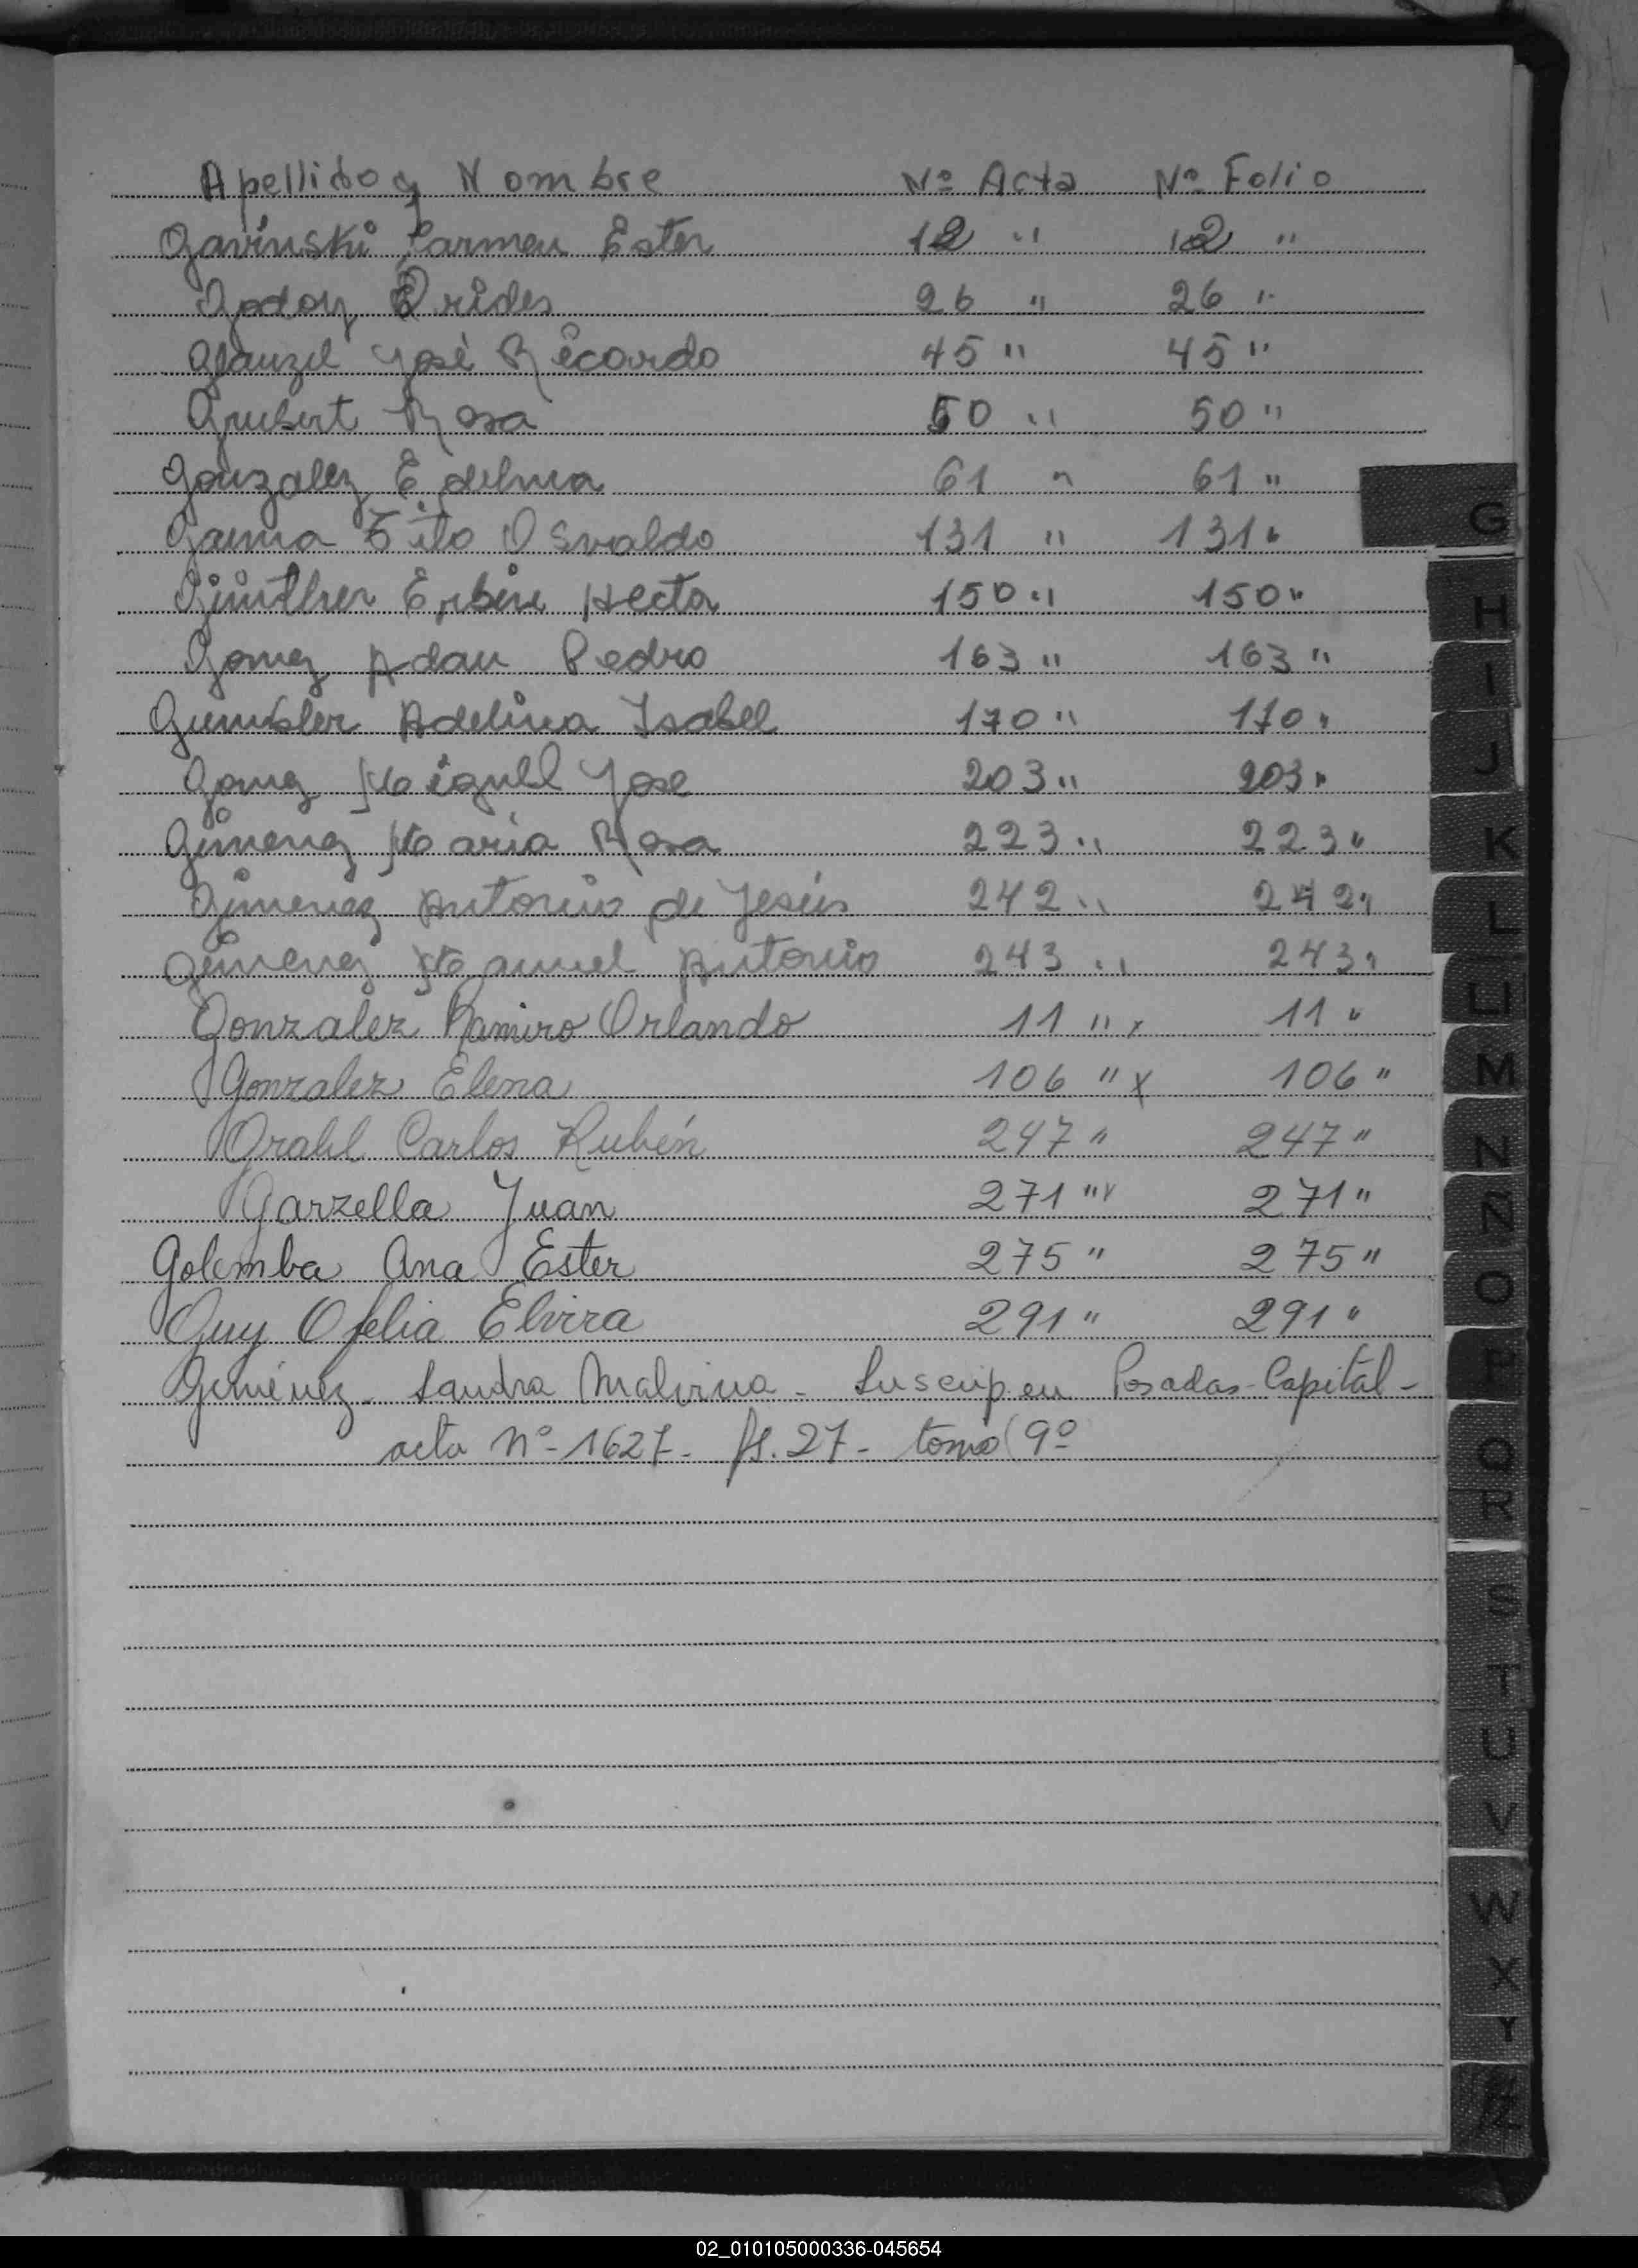 Apellido y Nombre Nº Acta Nº Folio
Gavinski Carmen Ester 12 " 12 "
Godoy Orides 26 " 26 "
Glauzel José Ricardo 45 " 45 "
Grubert Rosa 50 " 50 "
Gonzalez Edelma 61 " 61 "
Gauna Tito Osvaldo 131 " 131 "
Günther Erbin Hector 150 " 150 "
Gomez Adan Pedro 163 " 163 "
Adelina Isabel 170 " 170 "
Gomez Miguel Jose 203 " 203 "
Gimenez Maria Rosa 223 " 223 "
Gimenez Antonio de Jesús 242 " 242 "
Gimenez Manuel Antonio 243 " 243 "
Gonzalez Ramiro Orlando 11 " x 11 "
Gonzalez Elena 106 " x 106 "
Grahl Carlos Rubén 247 " 247 "
Garzella Juan 271 " 271 "
Golemba Ana Ester 275 " 275 "
Guy Ofelia Elvira 291 " 291 "
Giménez - Sandra Malvina - Inscrip en Posadas - Capital -
acta Nº - 1627 - fº. 27 - tomo 9º
G
H
I
J
K
L
LL
M
N
Ñ
O
P
Q
R
S
T
U
V
W
X
Y
Z
02_010105000336-045654